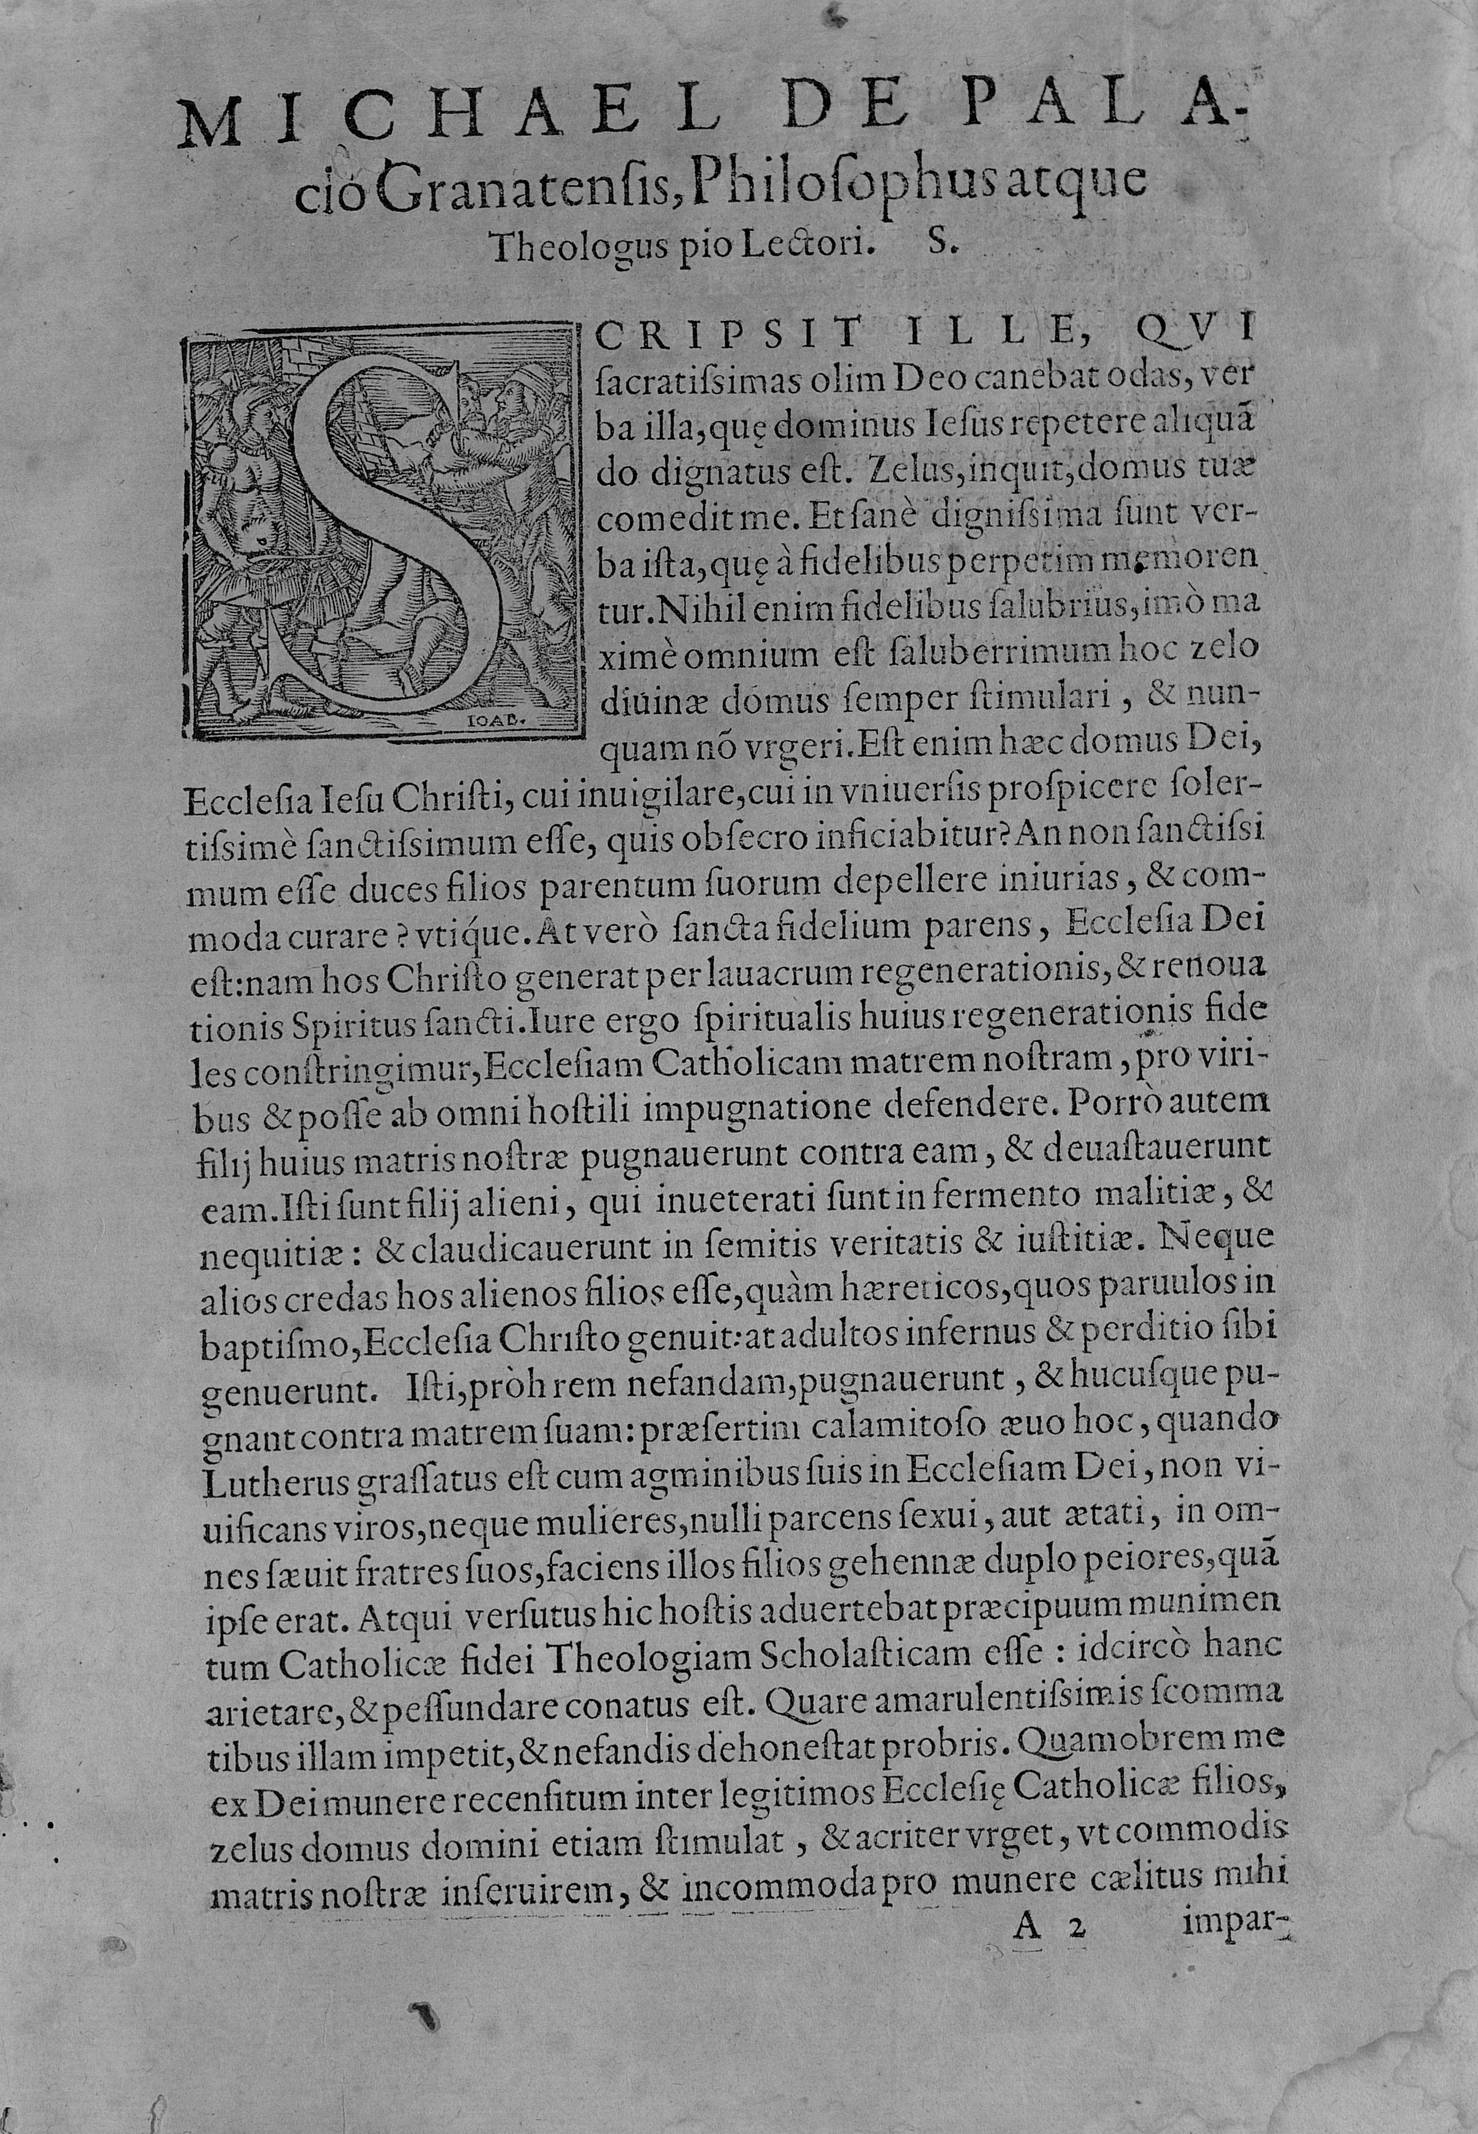 MICHAEL DE PALA-
cio Granatenſis, Philoſophus atque
Theologus pio Lectori. S.
SCRIPSIT ILLE, QVI
ſacratiſsimas olim Deo canebat odas, ver
ba illa, quę dominus Ieſus repetere aliquã
do dignatus eſt. Zelus, inquit, domus tuæ
comedit me. Et ſanè digniſsima ſunt ver-
ba iſta, quę à fidelibus perpetim memoren
tur. Nihil enim fidelibus ſalubrius, imò ma
ximè omnium eſt ſaluberrimum hoc zelo
diuinæ domus ſemper ſtimulari, & nun-
quam nõ vrgeri. Eſt enim hæc domus Dei,
IOAB.
Eccleſia Ieſu Chriſti, cui inuigilare, cui in vniuerſis proſpicere ſoler-
tiſsimè ſanctiſsimum eſſe, quis obſecro inficiabitur? An non ſanctiſsi
mum eſſe duces filios parentum ſuorum depellere iniurias, & com-
moda curare? vtiq́ue. At verò ſancta fidelium parens, Eccleſia Dei
eſt: nam hos Chriſto generat per lauacrum regenerationis, & renoua
tionis Spiritus ſancti. Iure ergo ſpiritualis huius regenerationis fide
les conſtringimur, Eccleſiam Catholicam matrem noſtram, pro viri-
bus & poſſe ab omni hoſtili impugnatione defendere. Porrò autem
filij huius matris noſtræ pugnauerunt contra eam, & deuaſtauerunt
eam. Iſti ſunt filij alieni, qui inueterati ſunt in fermento malitiæ, &
nequitiæ: & claudicauerunt in ſemitis veritatis & iuſtitiæ. Neque
alios credas hos alienos filios eſſe, quàm hæreticos, quos paruulos in
baptiſmo, Eccleſia Chriſto genuit: at adultos infernus & perditio ſibi
genuerunt. Iſti, pròh rem nefandam, pugnauerunt, & hucuſque pu-
gnant contra matrem ſuam: præſertim calamitoſo æuo hoc, quando
Lutherus graſſatus eſt cum agminibus ſuis in Eccleſiam Dei, non vi-
uificans viros, neque mulieres, nulli parcens ſexui, aut ætati, in om-
nes ſæuit fratres ſuos, faciens illos filios gehennæ duplo peiores, quã
ipſe erat. Atqui verſutus hic hoſtis aduertebat præcipuum munimen
tum Catholicæ fidei Theologiam Scholaſticam eſſe: idcircò hanc
arietare, & peſſundare conatus eſt. Quare amarulentiſsimis ſcomma
tibus illam impetit, & nefandis dehoneſtat probris. Quamobrem me
ex Dei munere recenſitum inter legitimos Eccleſię Catholicæ filios,
zelus domus domini etiam ſtimulat, & acriter vrget, vt commodis
matris noſtræ inſeruirem, & incommoda pro munere cælitus mihi
A 2 impar-